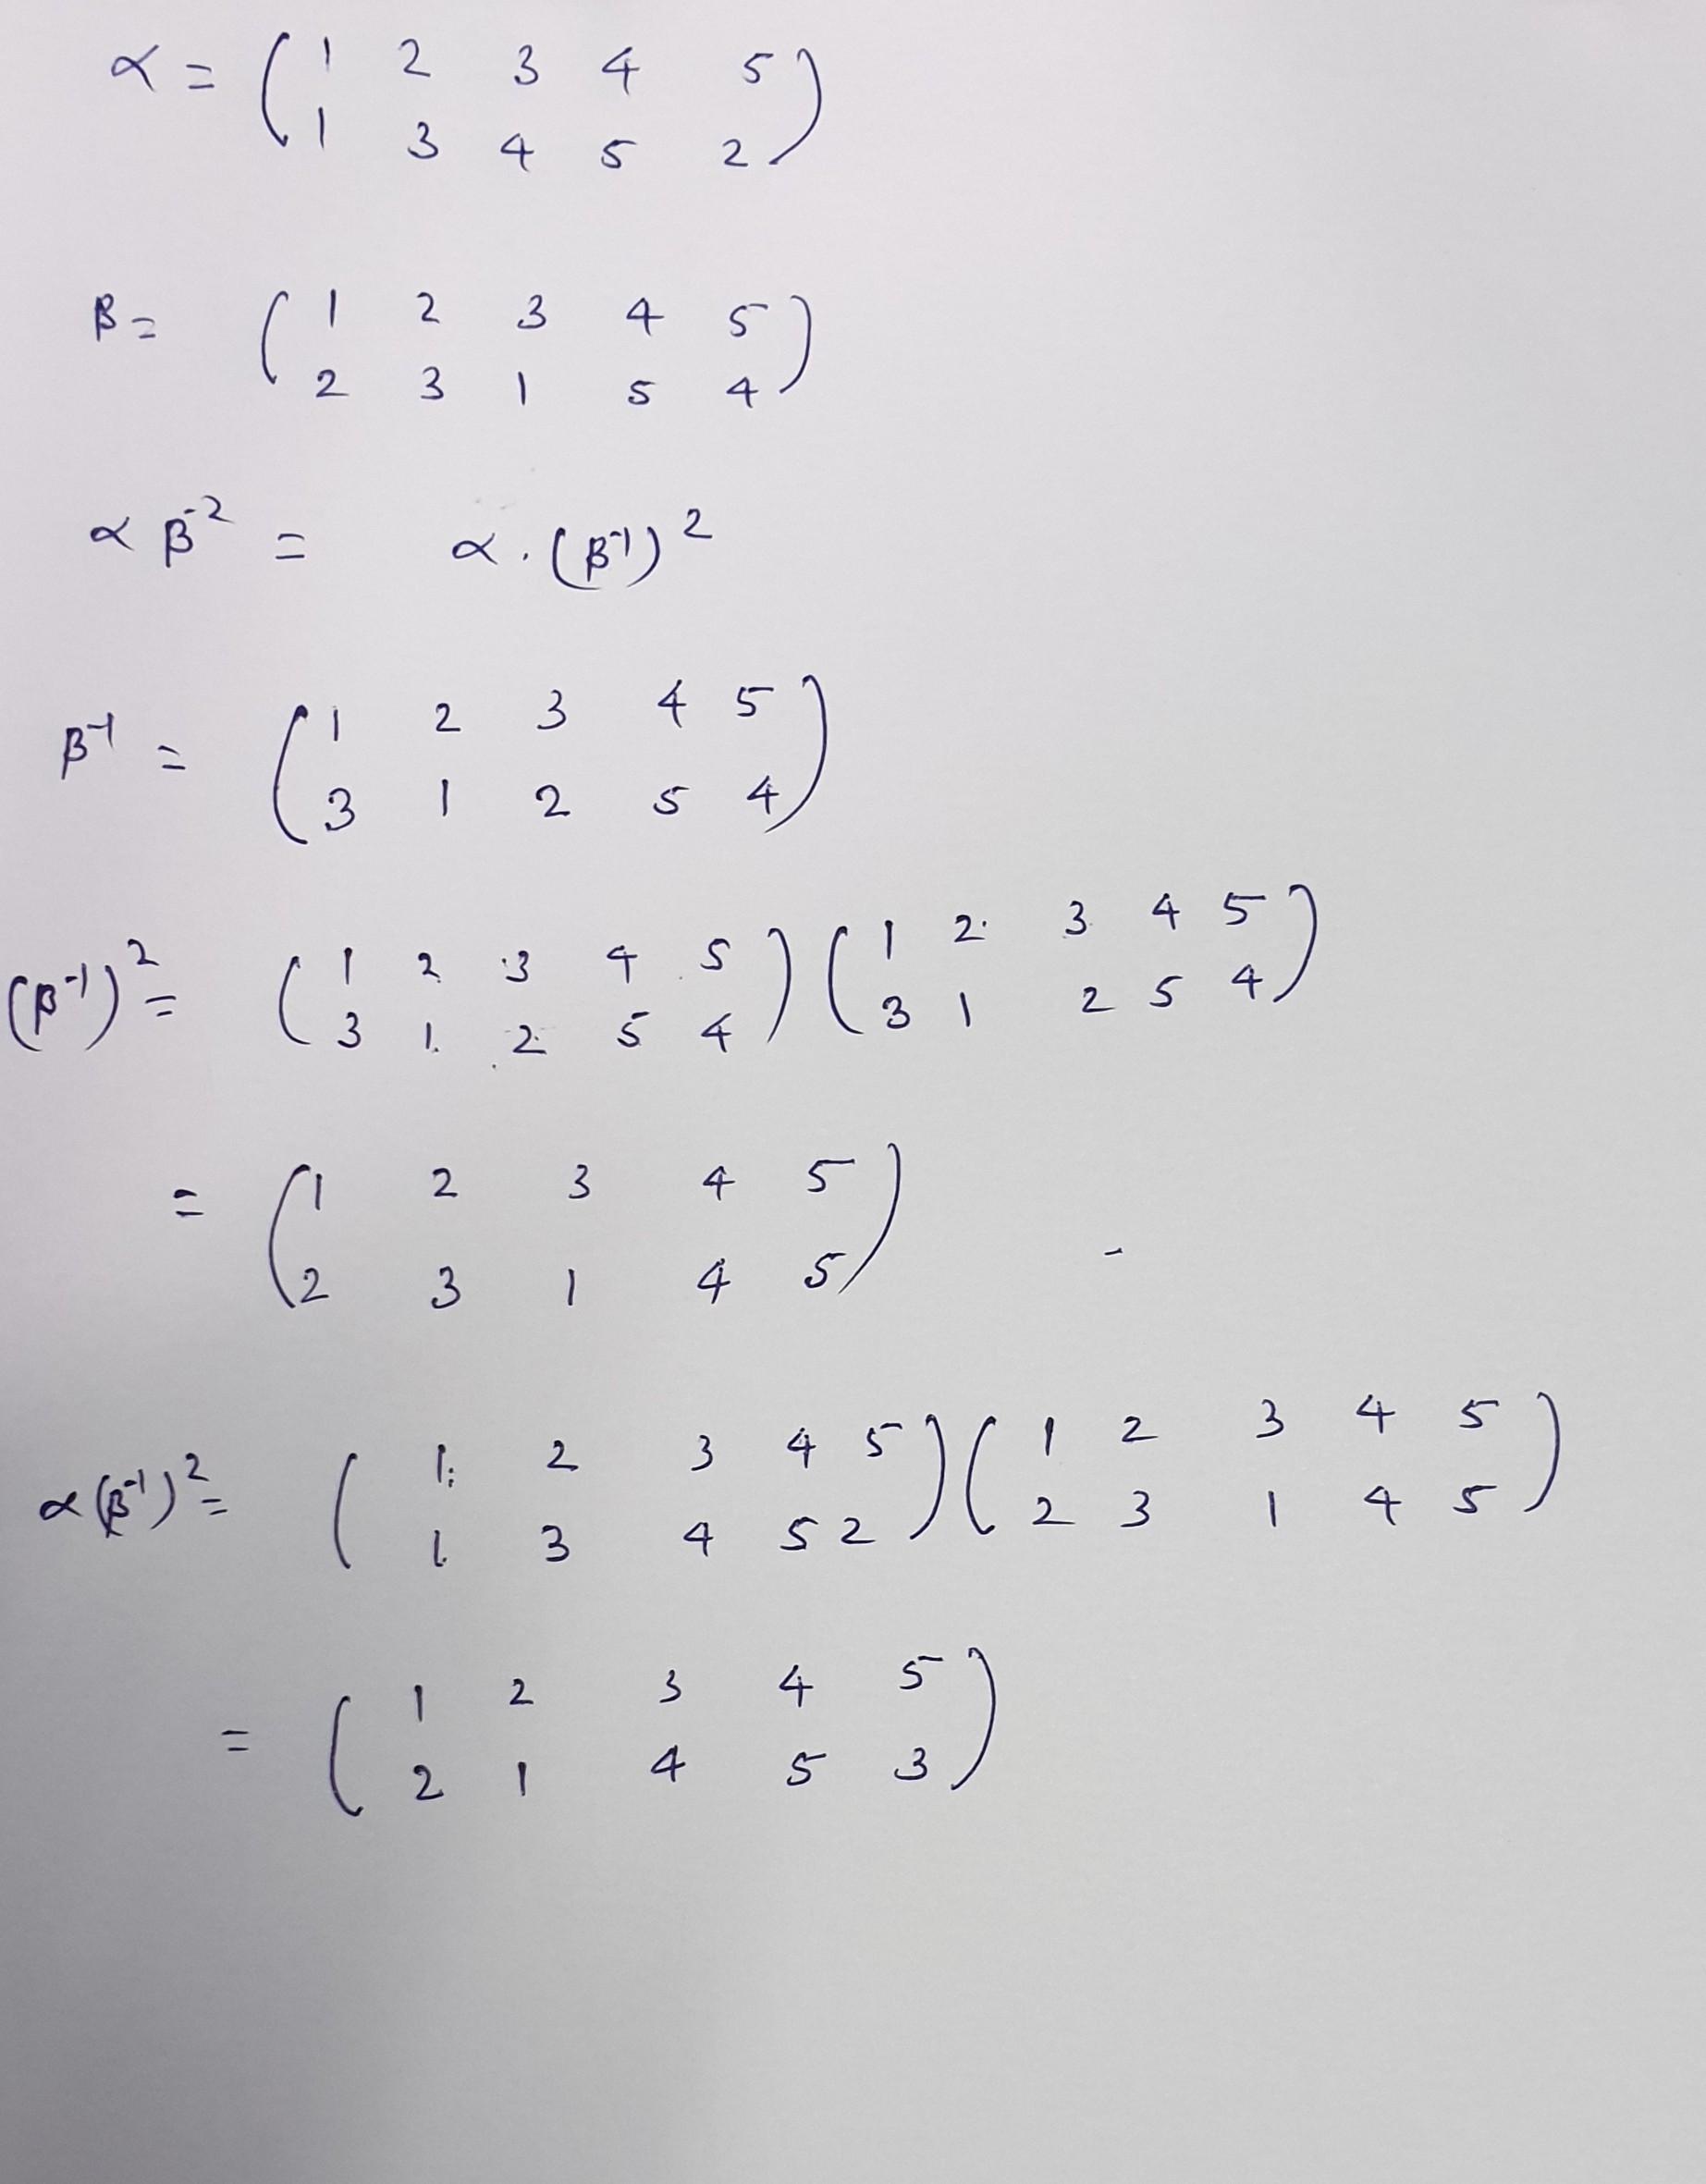 α = ( 1 2 3 4 5 )
1 3 4 5 2
β = ( 1 2 3 4 5 )
2 3 1 5 4
α β⁻² = α . (β⁻¹)²
β⁻¹ = ( 1 2 3 4 5 )
3 1 2 5 4
(β⁻¹)² = ( 1 2 3 4 5 ) ( 1 2 3 4 5 )
3 1 2 5 4 3 1 2 5 4
= ( 1 2 3 4 5 )
2 3 1 4 5
α (β⁻¹)² = ( 1 2 3 4 5 ) ( 1 2 3 4 5 )
1 3 4 5 2 2 3 1 4 5
= ( 1 2 3 4 5 )
2 1 4 5 3